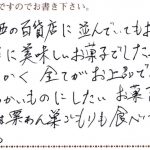 ですのでお書き下さい。
西の百貨店に並んでいてもお
に美味しいお菓子でした。
かく全てがお上品で
かいものにしたいお菓
は栗わん巣ごもりも食べ